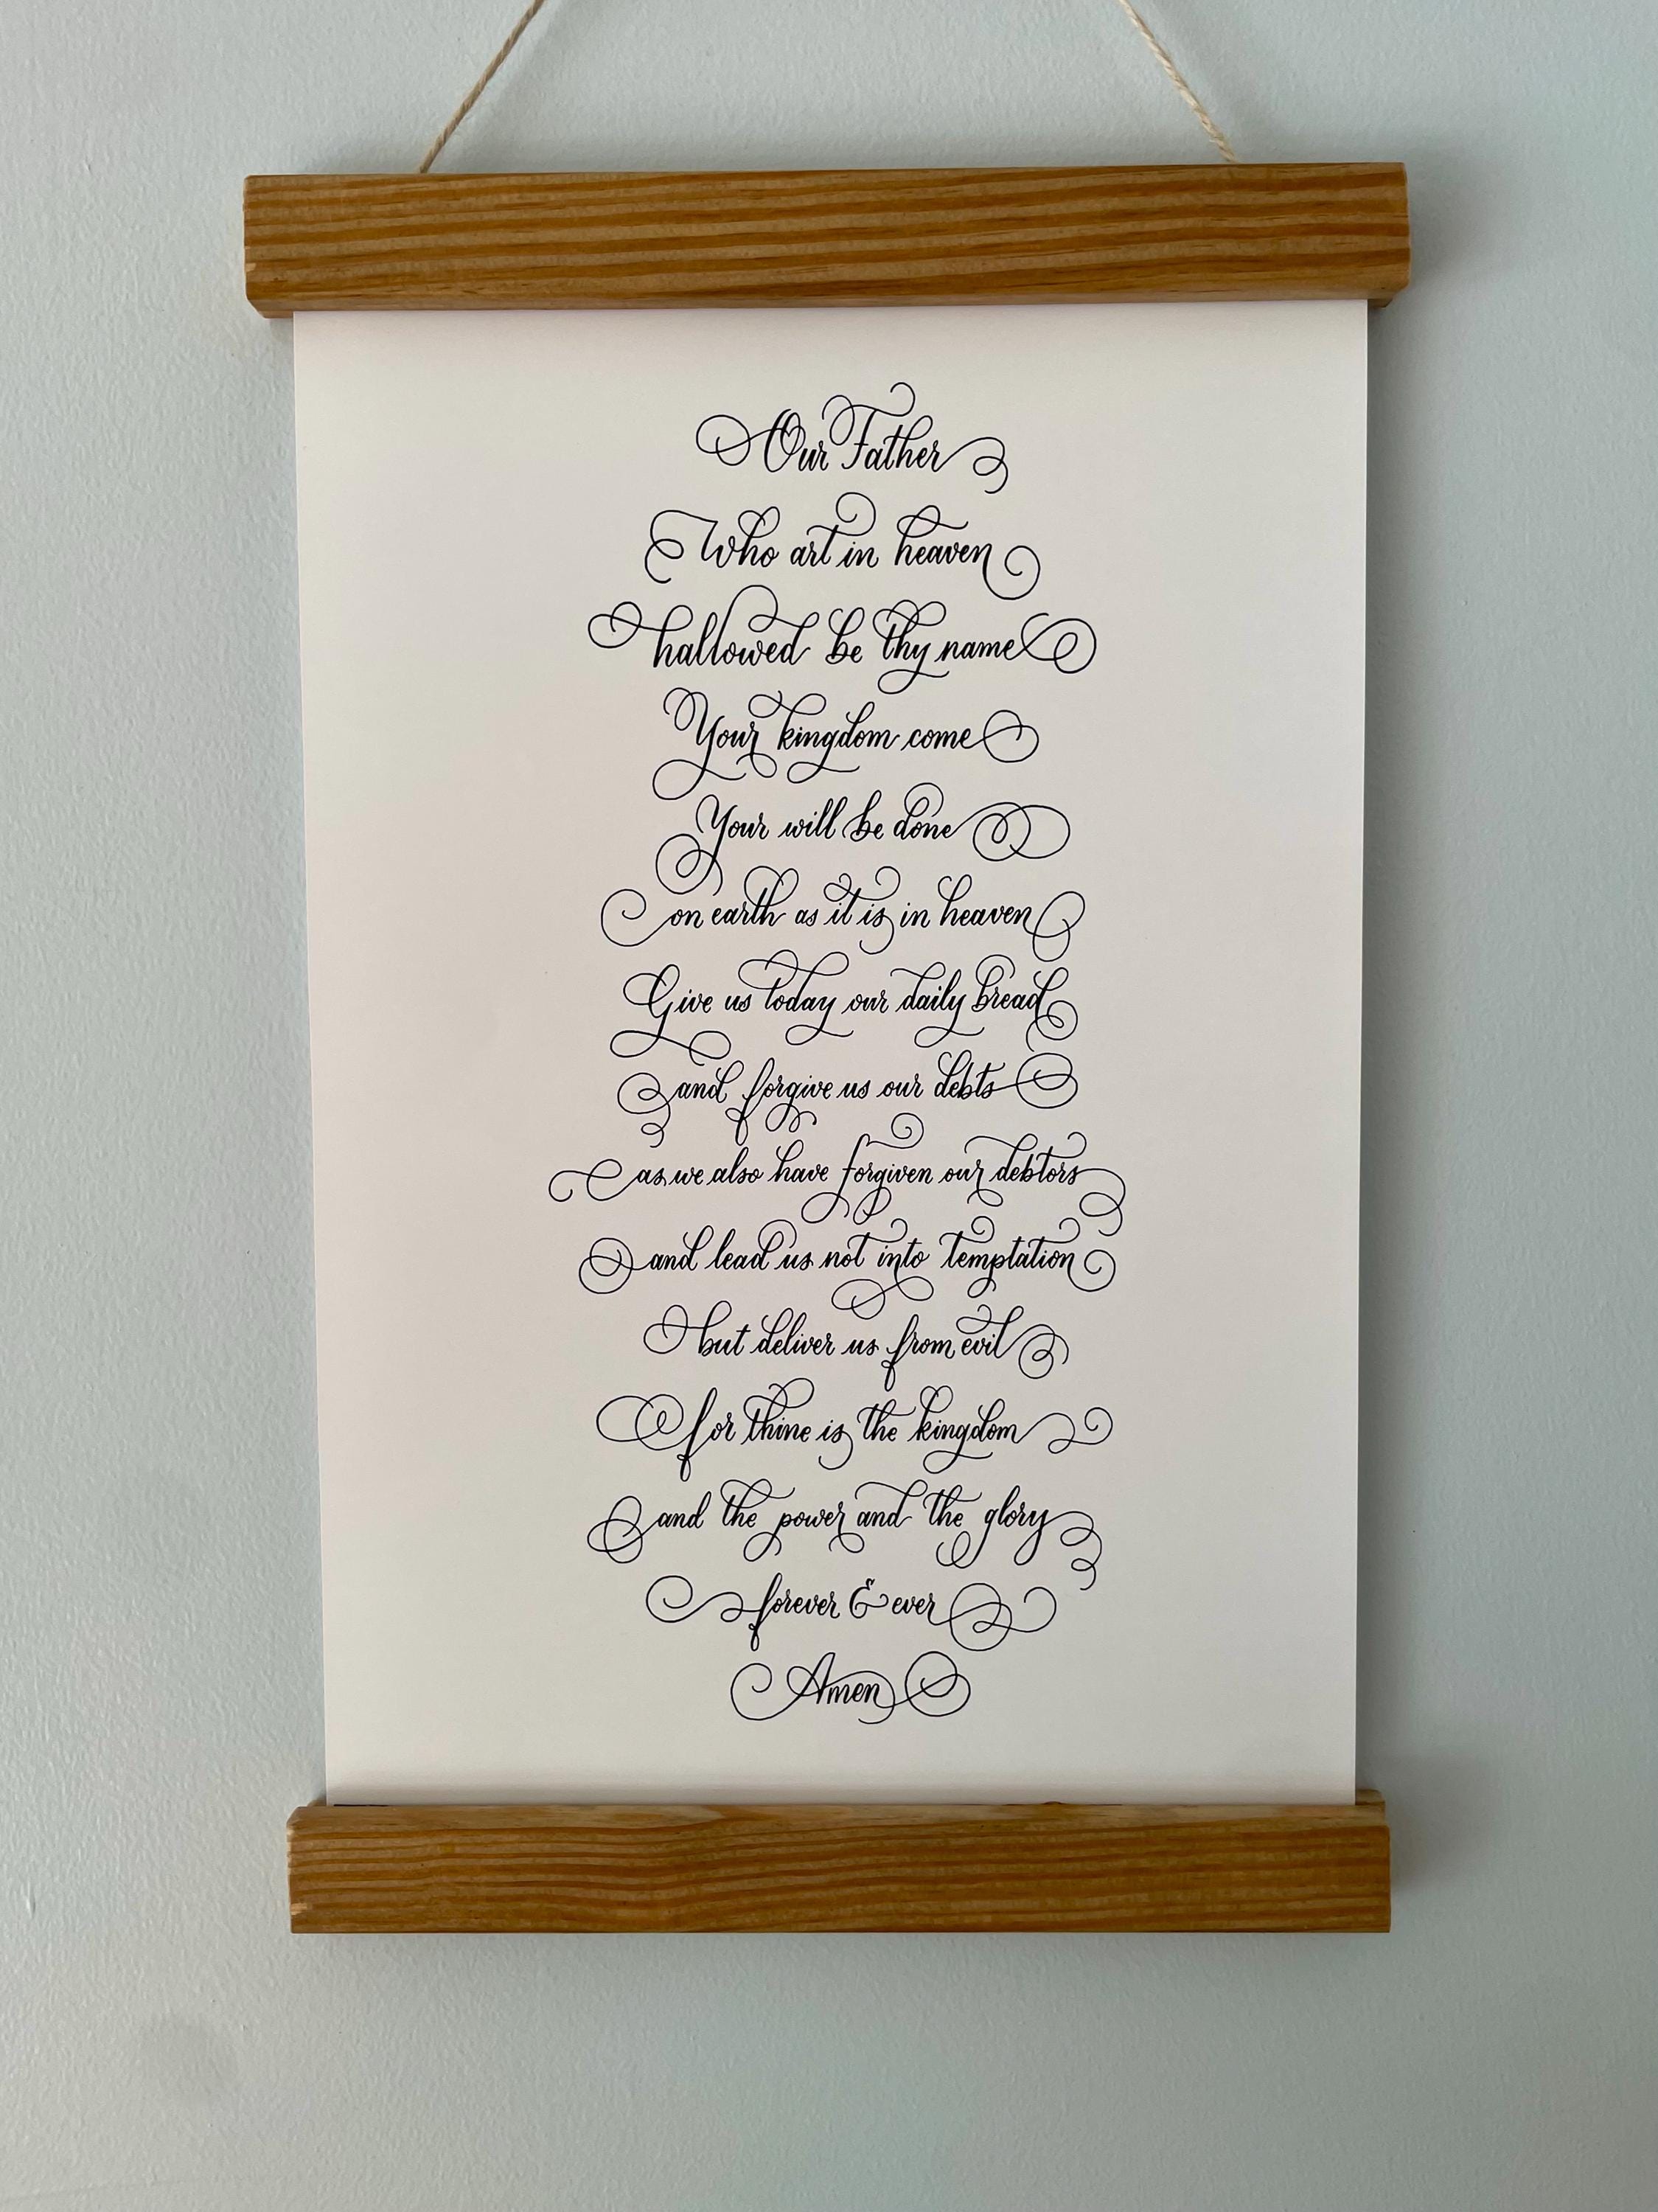 Our Father
Who art in heaven
hallowed be thy name
Your kingdom come
Your will be done
on earth as it is in heaven
Give us today our daily bread
and forgive us our debts
as we also have forgiven our debtors
and lead us not into temptation
but deliver us from evil
for thine is the kingdom
and the power and the glory
forever & ever
Amen